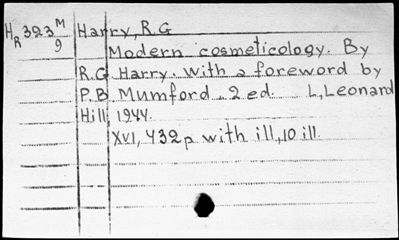 HR 323 M Harry, R.G
9
Modern cosmeticology. By
R.G Harry. With a foreword by
P.B. Mumford. 2 ed. L, Leonard
Hill, 1944.
XVI, 432 p with ill, 10 ill.